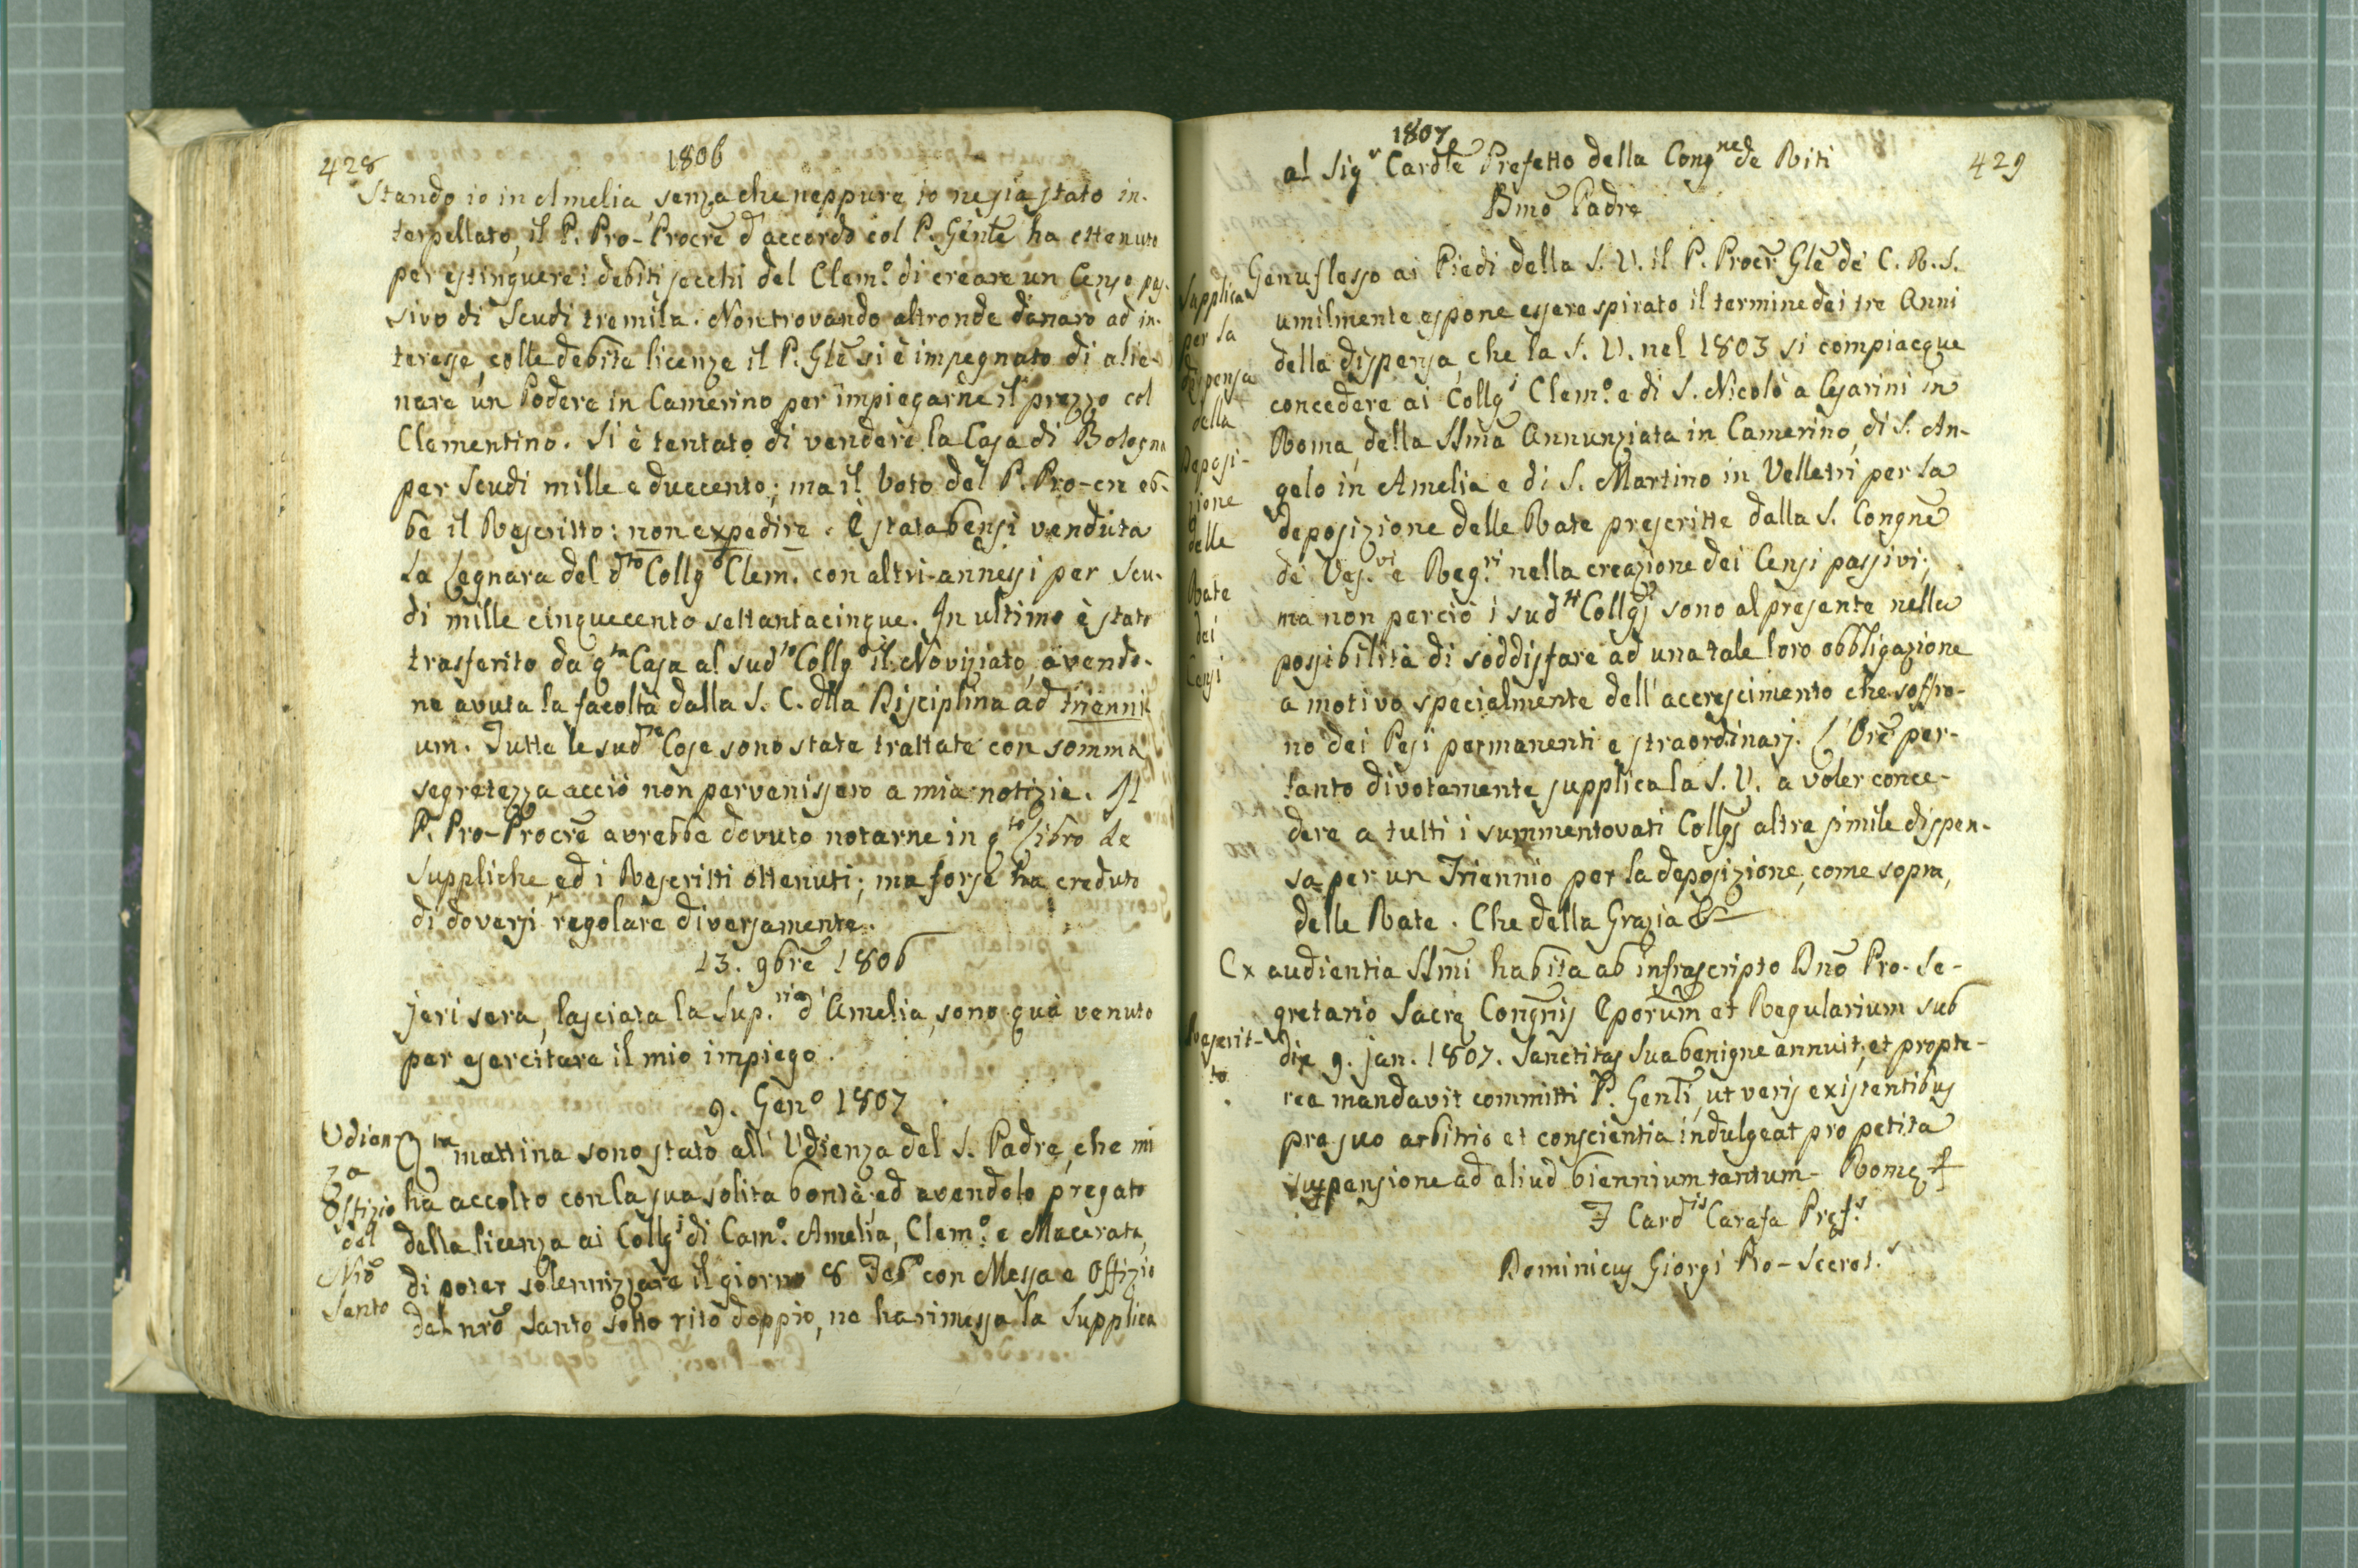 428
1806
Stando io in Amelia, senza che neppure io ne sia stato in-
terpellato, il P. Pro-Procre d'accordo col P. Gente ha ottenuto
per estinguere i debiti secchi del Clem.o di creare un Censo pas-
sivo di Scudi tremila. Non trovando altronde danaro ad in-
teresse, colle debite licenze il P. Gle si è impegnato di alie-
nare un Podere in Camerino per impiegarne il prezzo col
Clementino. Si è tentato di vendere la Casa di Bologna
per Scudi mille e duecento; ma il Voto del P. Pro-cre eb-
be il Rescritto: non expedire. È stata bensì venduta
la Legnara del dto Collgo Clem. con altri annessi per Scu-
di mille cinquecento settantacinque. In ultimo è stato
trasferito da qta Casa al sudto Collgo il Noviziato, avendo-
ne avuta la facoltà dalla S. C. dlla Disciplina ad trienni-
um. Tutte le sudte Cose sono state trattate con somma
segretezza acciò non pervenissero a mia notizia. Il
P. Pro-Procre avrebbe dovuto notarne in qto Libro le
Suppliche, ed i Rescritti ottenuti; ma forse ha creduto
di doversi regolare diversamente.
13. 9bre 1806
Jeri sera, lasciata la Sup.ria d'Amelia, sono quà venuto
per esercitare il mio impiego.
9. Geno 1807
Udien
za
Offizio
del
Nro
Santo
Qta mattina sono stato all'Udienza del S. Padre, che mi
ha accolto con la sua solita bontà; ed avendolo pregato
della licenza ai Collgj di Cam.o Amelia, Clem.o e Macerata,
di poter solennizzare il giorno 8 Febo con Messa e Offizio
del nro Santo sotto rito doppio, ne ha rimessa la Supplica
1807
429
al Sigr Cardle Prefetto della Congne de Riti
Bmo Padre
Supplica
per la
dispensa
della
Deposi-
zione
delle
Rate
dei
Censi
Genuflesso ai Piedi della S. V. il P. Procr Gle de' C. R. S.
umilmente espone essere spirato il termine dei tre Anni
della dispensa, che la S. V. nel 1803 si compiacque
concedere ai Collgj Clem.o e di S. Nicolò a Cesarini in
Roma, della SSma Annunziata in Camerino, di S. An-
gelo in Amelia e di S. Martino in Velletri per la
deposizione delle Rate prescritte dalla S. Congne
de' Ves.vi e Reg.ri nella creazione dei Censi passivi;
ma non perciò i sudti Collgj sono al presente nella
possibilità di soddisfare ad una tale loro obbligazione
a motivo specialmente dell'accrescimento che soffro-
no dei Pesi permanenti e straordinarj. L'Ore per-
tanto divotamente supplica la S. V. a voler conce-
dere a tutti i summentovati Collgj altra simile dispen-
sa per un Triennio per la deposizione, come sopra,
delle Rate. Che della Grazia &
Rescrit-
to
Ex audientia SSmi habita ab infrascripto Dno Pro-Se-
gretario Sacrę Congnis Eporum et Regularium sub
die 9. Jan. 1807. Sanctitas Sua benigne annuit, et propte-
rea mandavit committi P. Genli, ut veris existentibus
pro suo arbitrio et conscientia indulgeat pro petita
suspensione ad aliud biennium tantum - Romę
F Cardlis Carafa Pręf.s
Dominicus Giorgi Pro-Secret.s